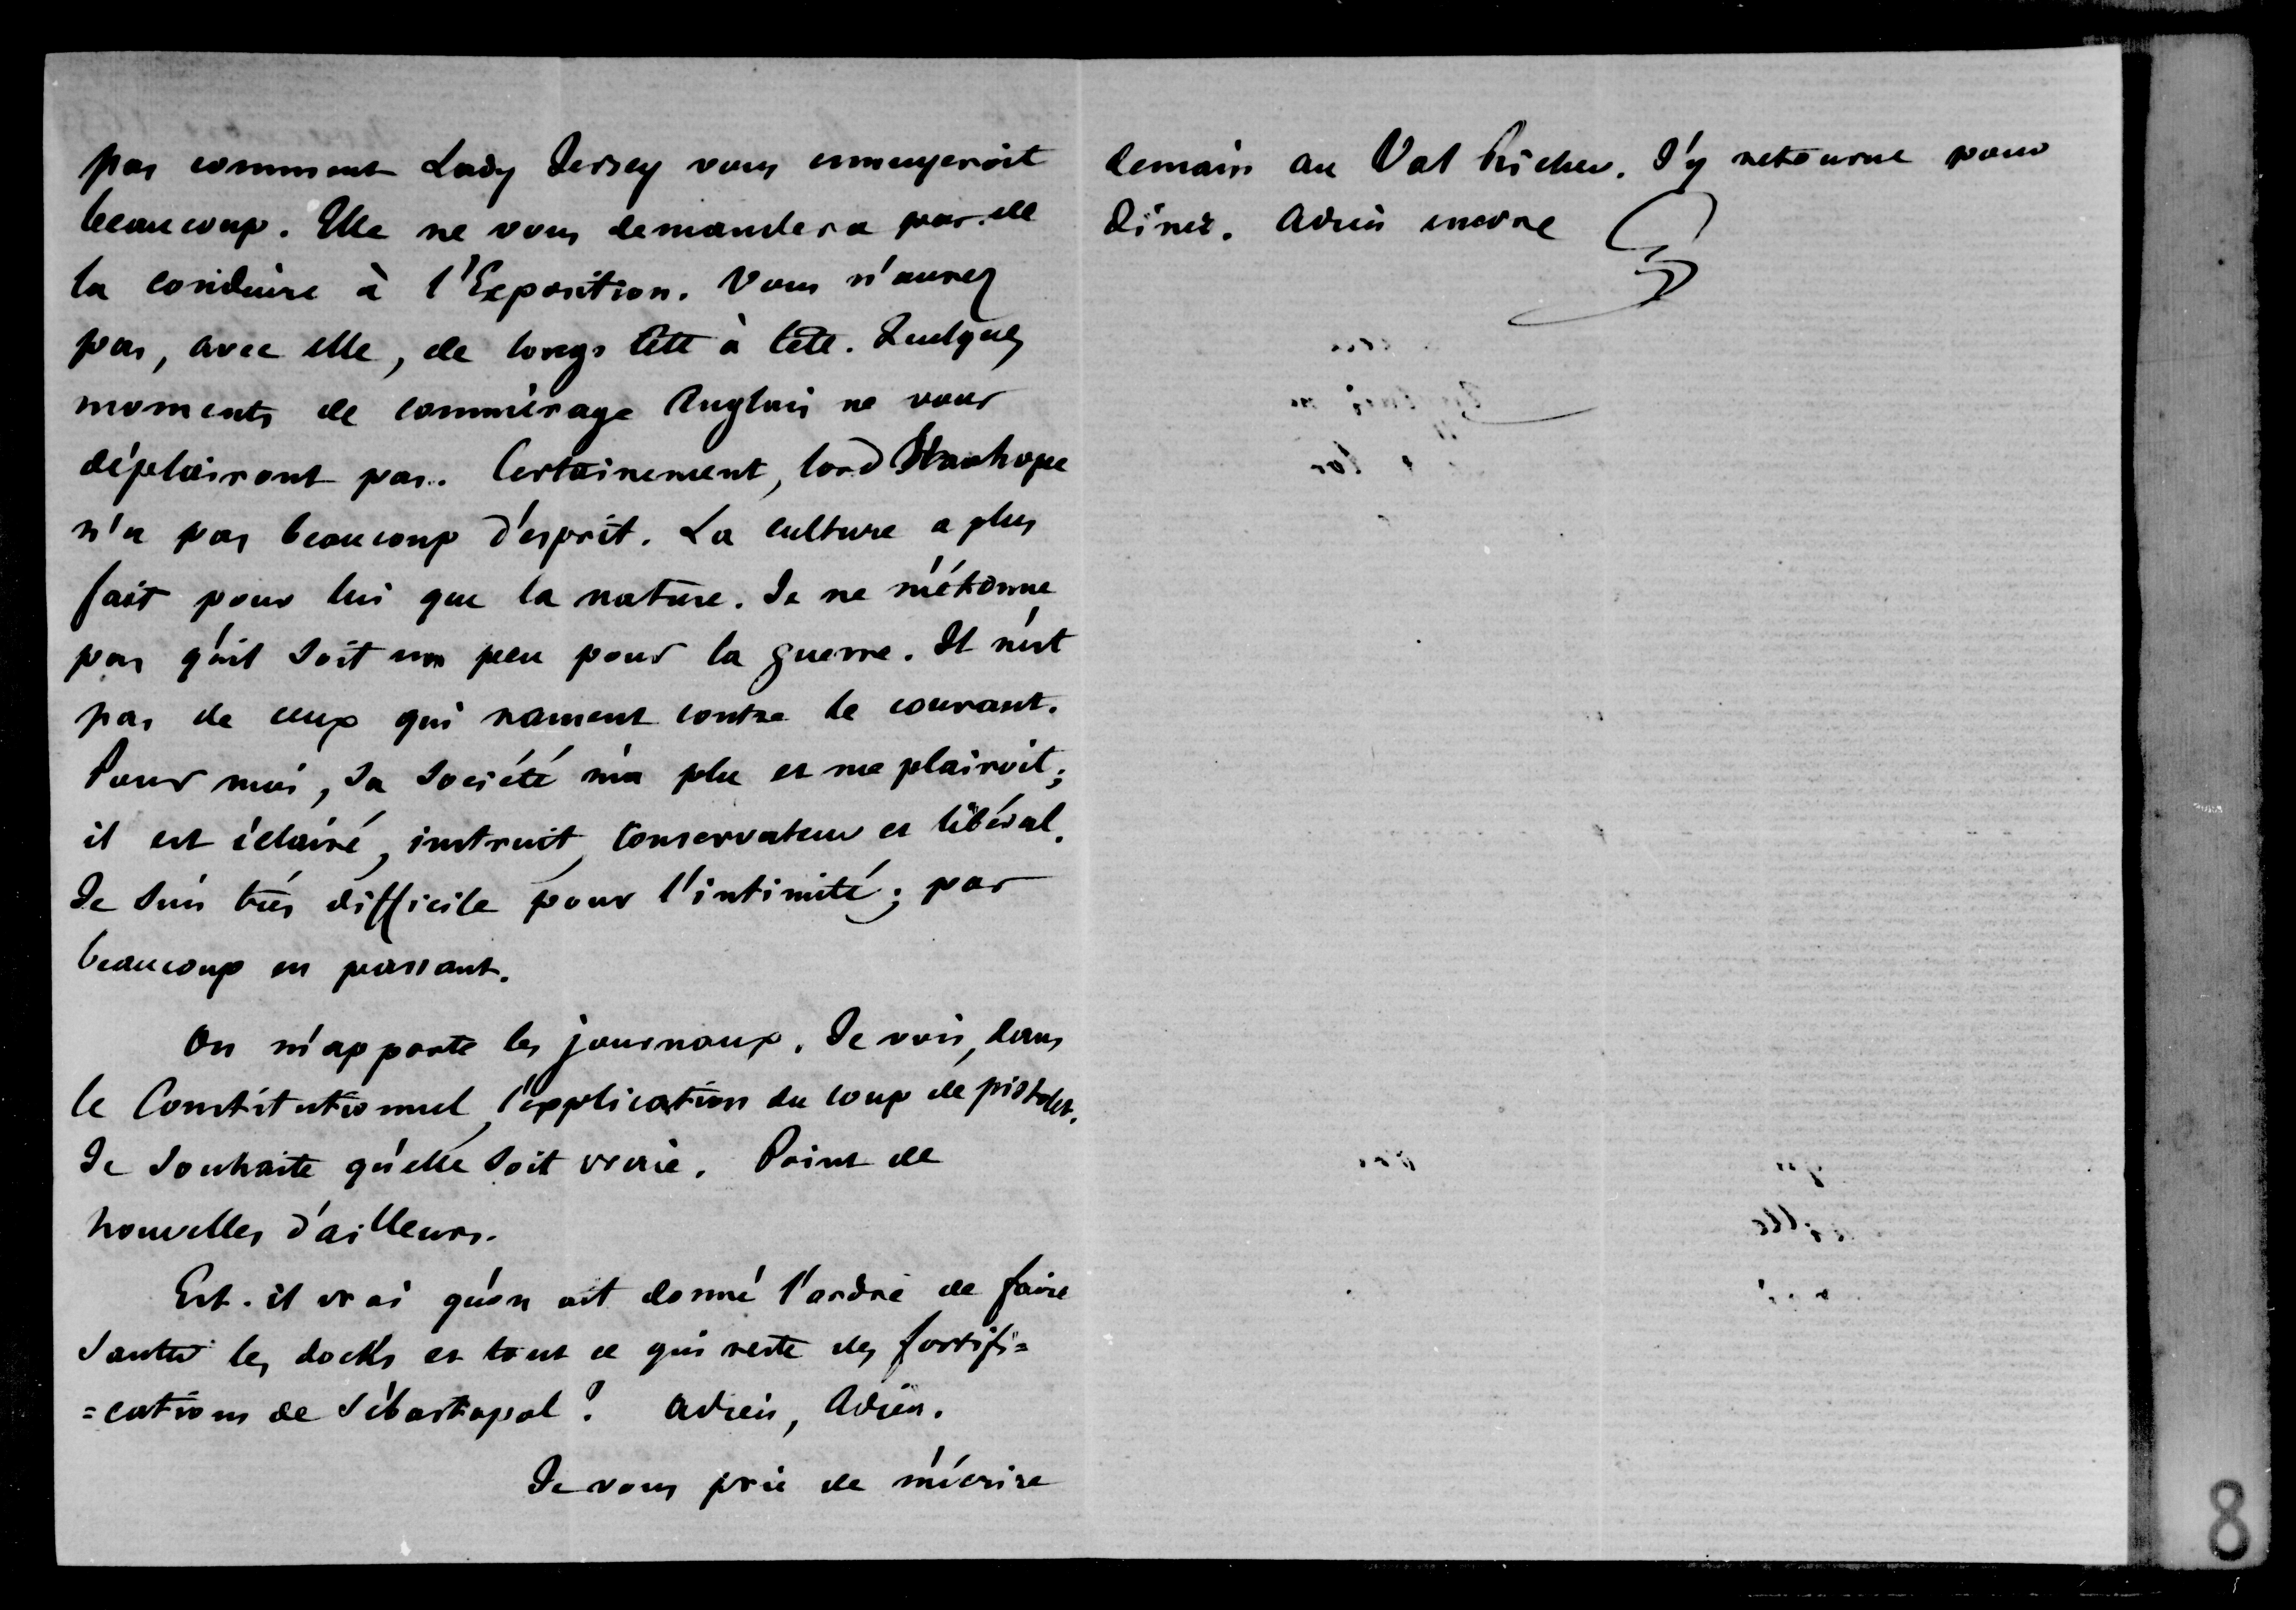 pas comment Lady Jersey vous ennuyeroit
beaucoup. Elle ne vous demandera pas de
la conduire à l'Exposition. Vous n'aurez
pas, avec elle, de longs tête à tête. Quelques
moments de commérage Anglais ne vous
déplairont pas. Certainement, lord Stanhope
n'a pas beaucoup d'esprit. La culture a plus
fait pour lui que la nature. Je ne m'étonne
pas qu'il soit un peu pour la guerre. Il n'est
pas de ceux qui rament contre le courant.
Pour moi, sa société m'a plu et me plairoit;
il est éclairé, instruit, conservateur et libéral.
Je suis très difficile pour l'intimité; pas
beaucoup en passant.
On m'apporte les journaux. Je vois, dans
le Constitutionnel, l'explication du coup de pistolet.
Je souhaite qu'elle soit vraie. Point de
nouvelles d'ailleurs.
Est-il vrai qu'on ait donné l'ordre de faire
sauter les docks et tout ce qui reste des fortifi=
=cations de Sébastopol? Adieu, Adieu.
Je vous prie de m'écrire
demain au Val Richer. J'y retourne pour
diner. Adieu encore G
8